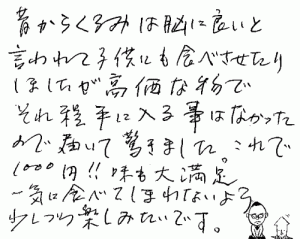 昔からくるみは脳に良いと
言われて子供にも食べさせたり
しましたが高価な物で
それ程手に入る事はなかった
ので届いて驚きました。これで
1000円!!味も大満足。
一気に食べてしまわないよう
少しづつ楽しみたいです。